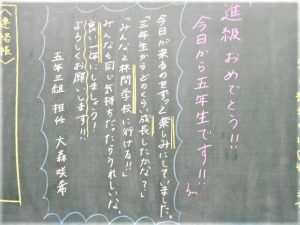 進級 おめでとう!!
今日から五年生です!!
今日が来るのをずっと楽しみにしていました。
「三年生からどのくらい成長したかな?」
「みんなと林間学校に行ける!!」
みんなも同じ気持ちだったらうれしいな。
良い一年にしましょう!
よろしくお願いします!!
五年三組 担任 大森咲希
連絡帳